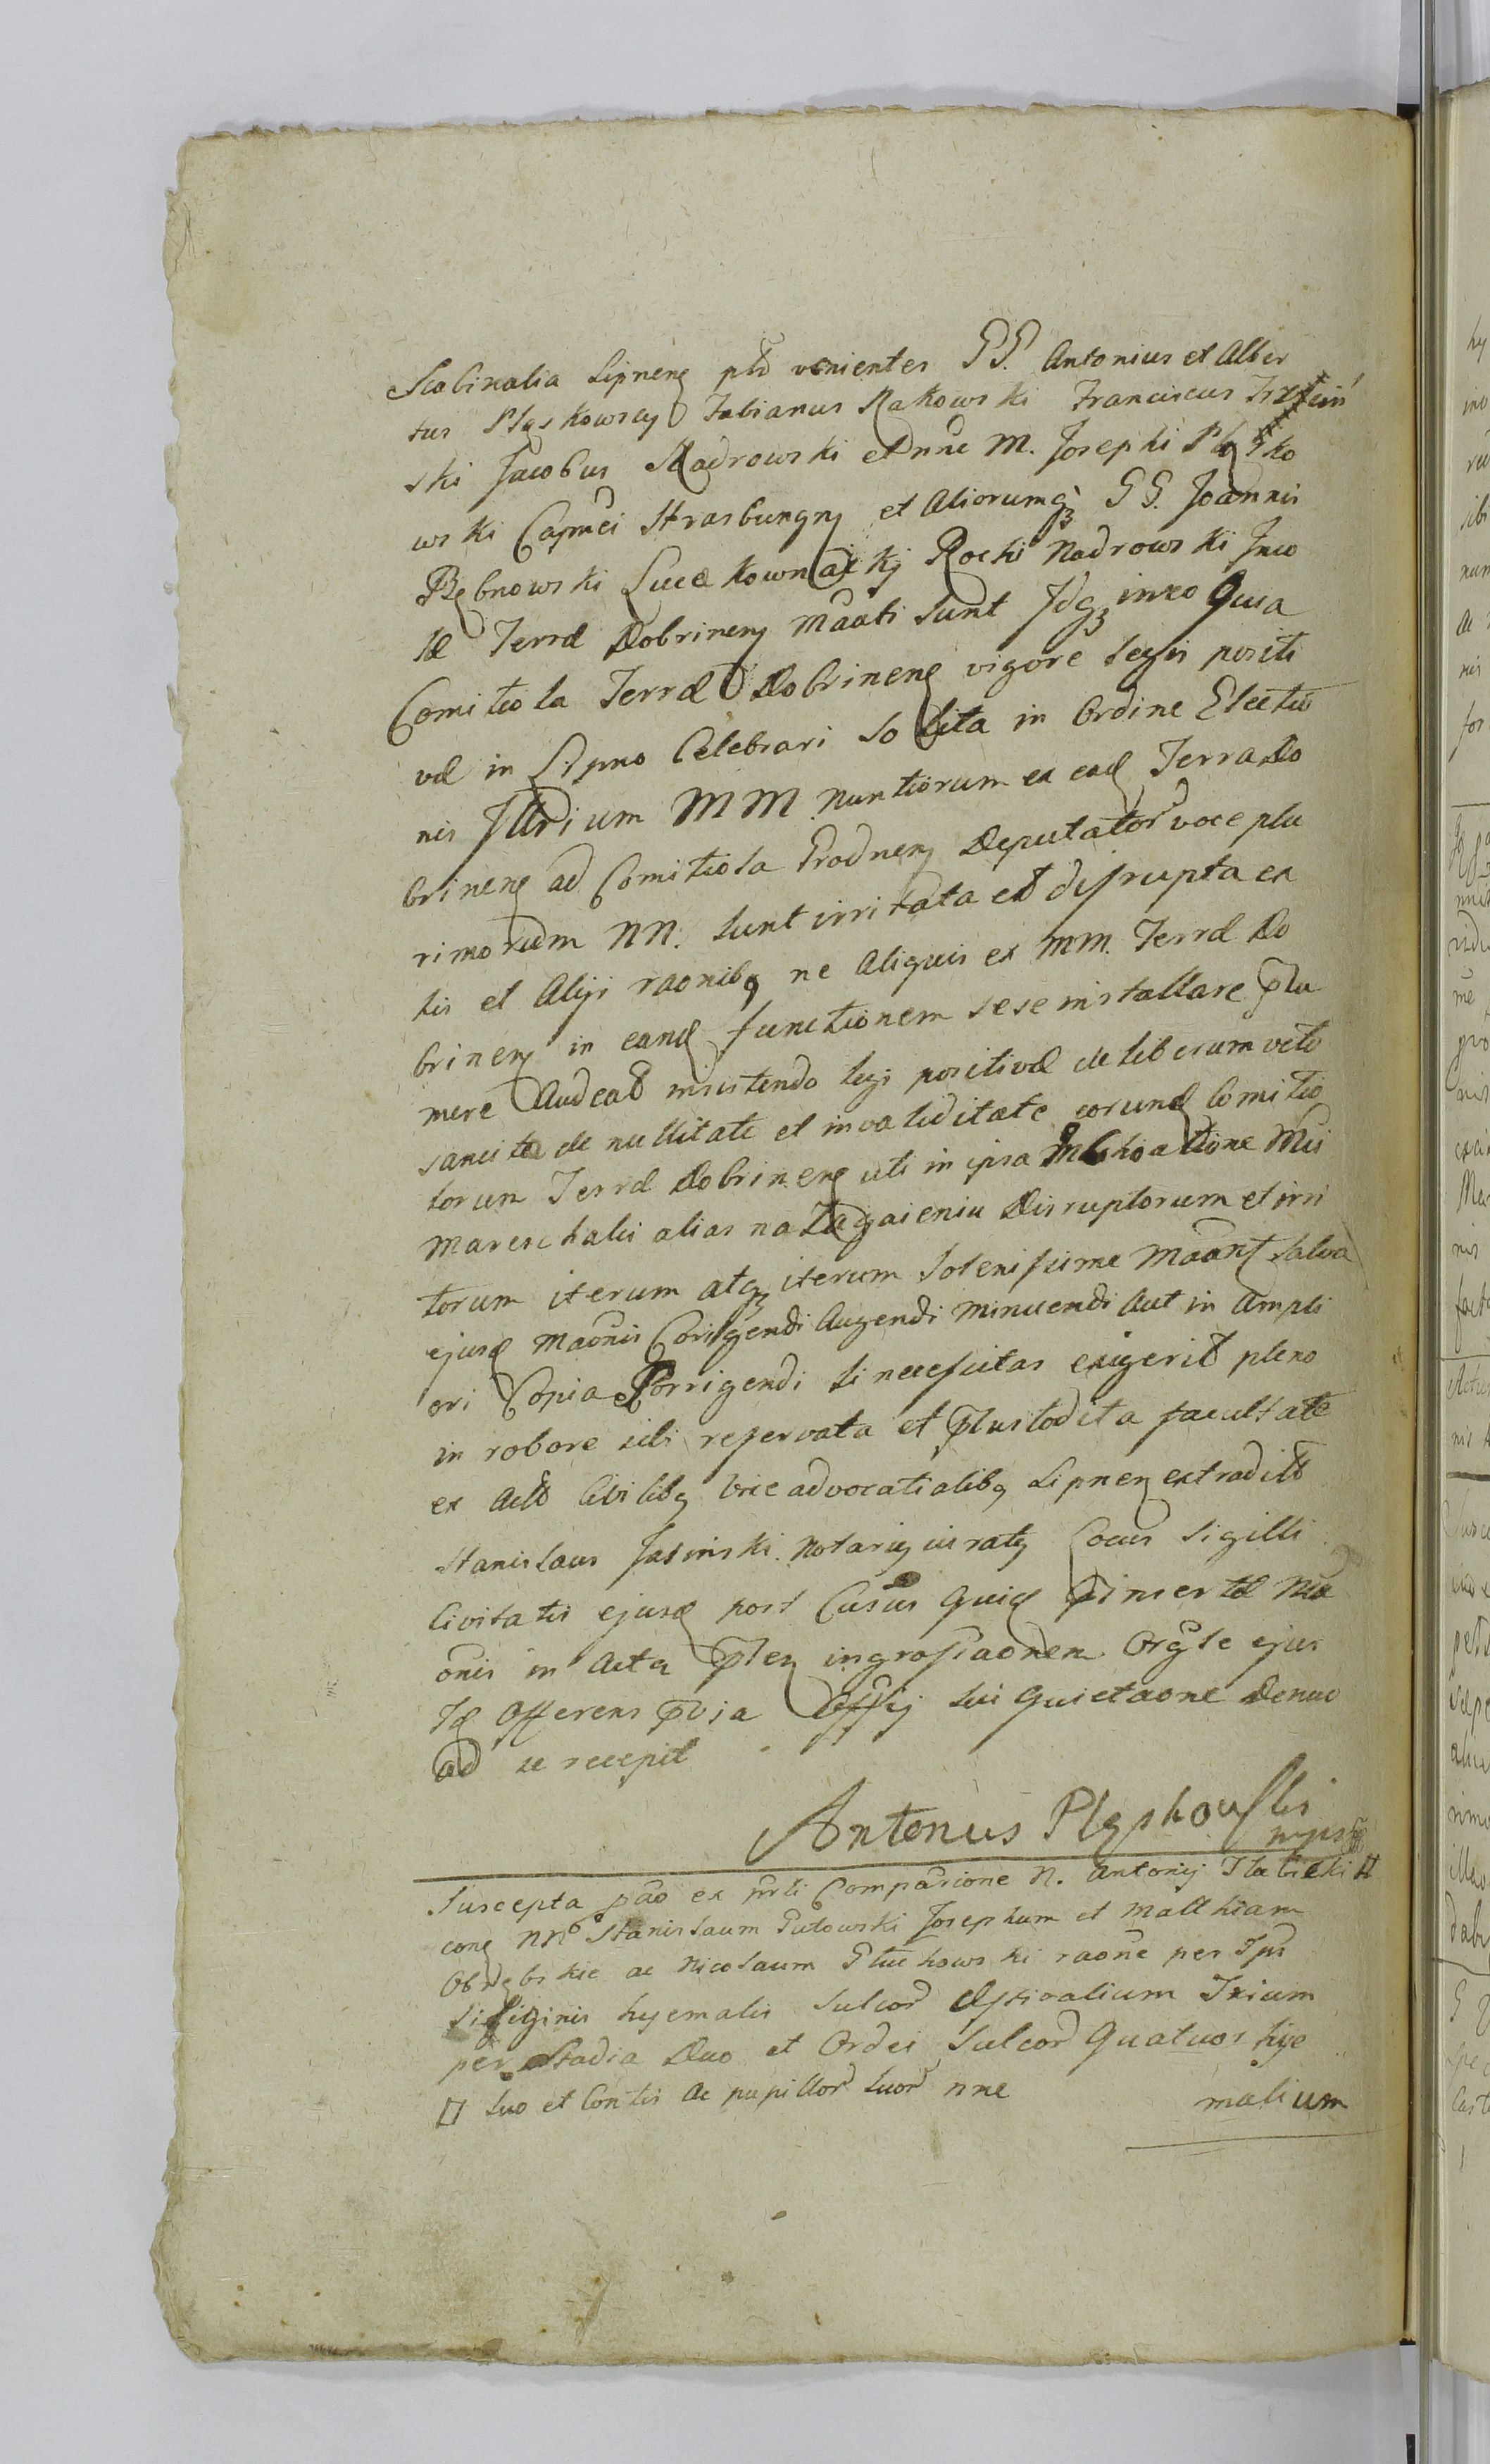 Scabinalia Lipneñ venientes GG. Antonius et Alber
tus Pląskowscy Fabianus Rakowski Franciscus
ski Jacobus Nadrowski M. Josephi Pląsko
wski Strasburgeñ et Aliorumq₃ GG. Joannis
Rębnowski Lucæ Kownacki Rochi Nadrowski Inco
læ Terræ Dobrineñ Maãti sunt Idq₃ in eo Quia
Comitiola Terræ Dobrineñ vigore legis positi
væ in Lipno Celebrari solita in Ordine Electio
nis Illrium MM. Nuntiorum ex ead Terra Do
brineñ ad Comitiola Grodneñ Deputator voce plu
rimorum NN. sunt irritata et disrupta ex
his et Aliis raõnibq ne Aliquis ex MM. Terræ Do
brineñ in eand functionem sese installare p̃su
mere Audeat insistendo legi positivæ de liberum veto
sancitæ de nullitate et invaliditate eorund Comitio
lorum Terræ Dobrineñ uti in ipsa Inchoatione
Mareschalii alias na Zagaieniu Disruptorum et irri
torum iterum atq₃ iterum solenissime Maãnt salva
ejusd Maõnis Corrigendi Augendi Minuendi Aut in Ampli
ori Copia Porrigendi si necessitas exigerit pleno
in robore sibi reservata et facultate
ex Actis Civilibq advocatialibq Lipneñ extradit
Stanislaus Jasinski Notariq iuratq Locus Sigilli
Civitatis ejusd post Cujus Quid insertæ Ma
õnis in Acta p̃señ ingrossaõnem Orgle ejus
Id Offerens Offij sui Quietaõne Denuo
ad se recepit
Antonius Pląskowski
mpsr
Suscepta ex Comparitione N. Antonij
cong NN. Stanislaum Gutowski Josephum et Matthiam
Obrębskie ac Nicolaum Głuchowski raõne per Ips
Siliginis hyemalis Sulcor Æstivalium Trium
per Stadia Duo et Ordei Sulcor Quatuor hye
suo et Contis ac pupillor suor nne malium